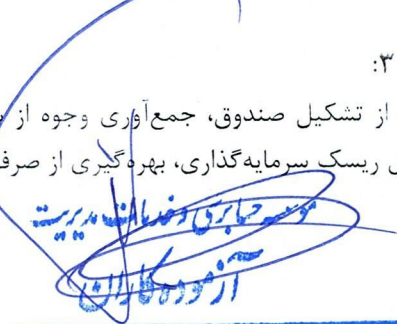 ۳:
از تشکیل صندوق، جمع‌آوری وجوه از
ریسک سرمایه‌گذاری، بهره‌گیری از صرف
موسسه حسابرسی و خدمات مدیریت
آزموده کاران